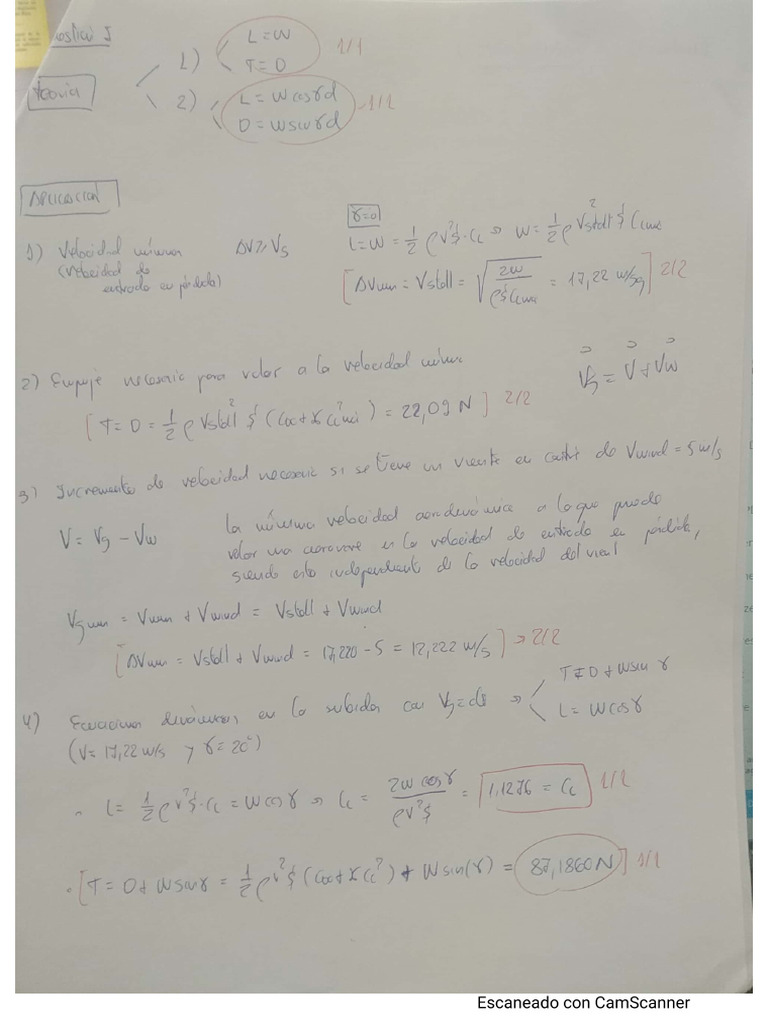 L = W
1) T = D 1/1
Teoria
2) L = W cos γd 1/1
D = W sin γd
APLICACION
γ=0
1) Velocidad mínima ΔV ≥ Vs L = W = 1/2 ρ V² S · CL ⇒ W = 1/2 ρ Vstall² S CLmax
(Velocidad de
entrada en pérdida) [ΔVmin = Vstall = √(2W / ρ S CLmax) = 17,22 m/sg] 2/2
2) Empuje necesario para volar a la velocidad mínima Vg = V + Vw
[T = D = 1/2 ρ Vstall² S (CD0 + K CLmax²) = 22,09 N] 2/2
3) Incremento de velocidad necesario si se tiene un viento en contra de Vwind = 5 m/s
V = Vg - Vw La mínima velocidad aerodinámica a la que puede
volar una aeronave es la velocidad de entrada en pérdida,
siendo esto independiente de la velocidad del
Vgmin = Vmin + Vwind = Vstall + Vwind
[ΔVmin = Vstall + Vwind = 17,220 - 5 = 12,222 m/s] → 2/2
4) Ecuaciones dinámicas en la subida con Vg = cte ⇒ T = D + W sin γ
L = W cos γ
(V = 17,22 m/s y γ = 20°)
· L = 1/2 ρ V² S · CL = W cos γ ⇒ CL = 2W cos γ / ρ V² S = 1,1276 = CL 1/2
· [T = D + W sin γ = 1/2 ρ V² S (CD0 + K CL²) + W sin(γ) = 87,1860 N] 1/1
Escaneado con CamScanner